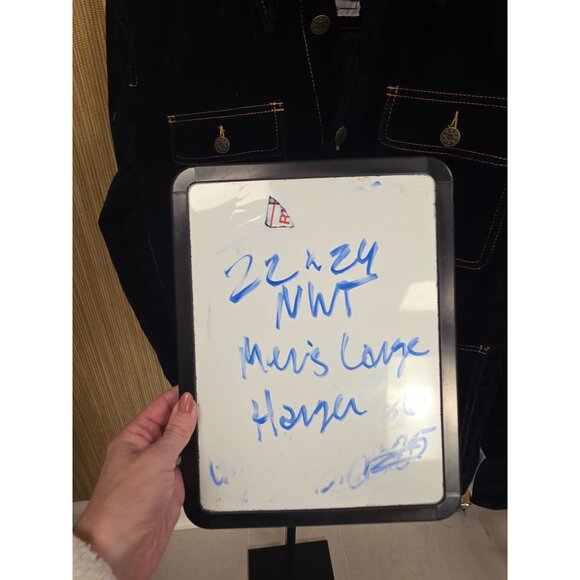 22 x 24
NWT
Men's Large
Hanger